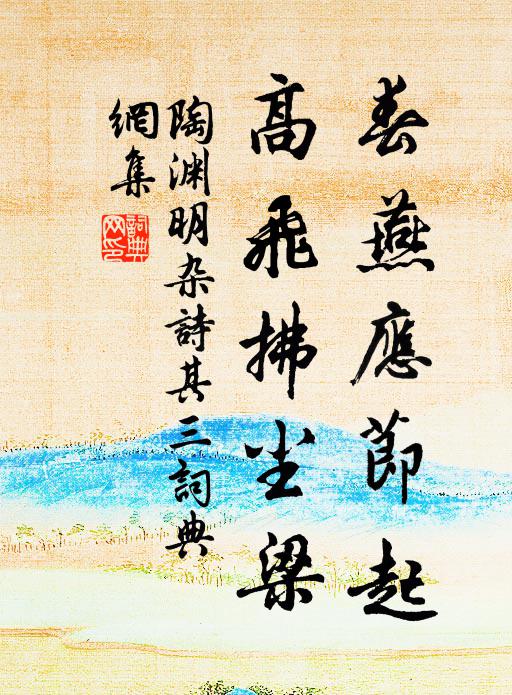 春燕應節起
高飛拂尘梁
陶渊明杂詩其三詞典
網集
詞典
网印